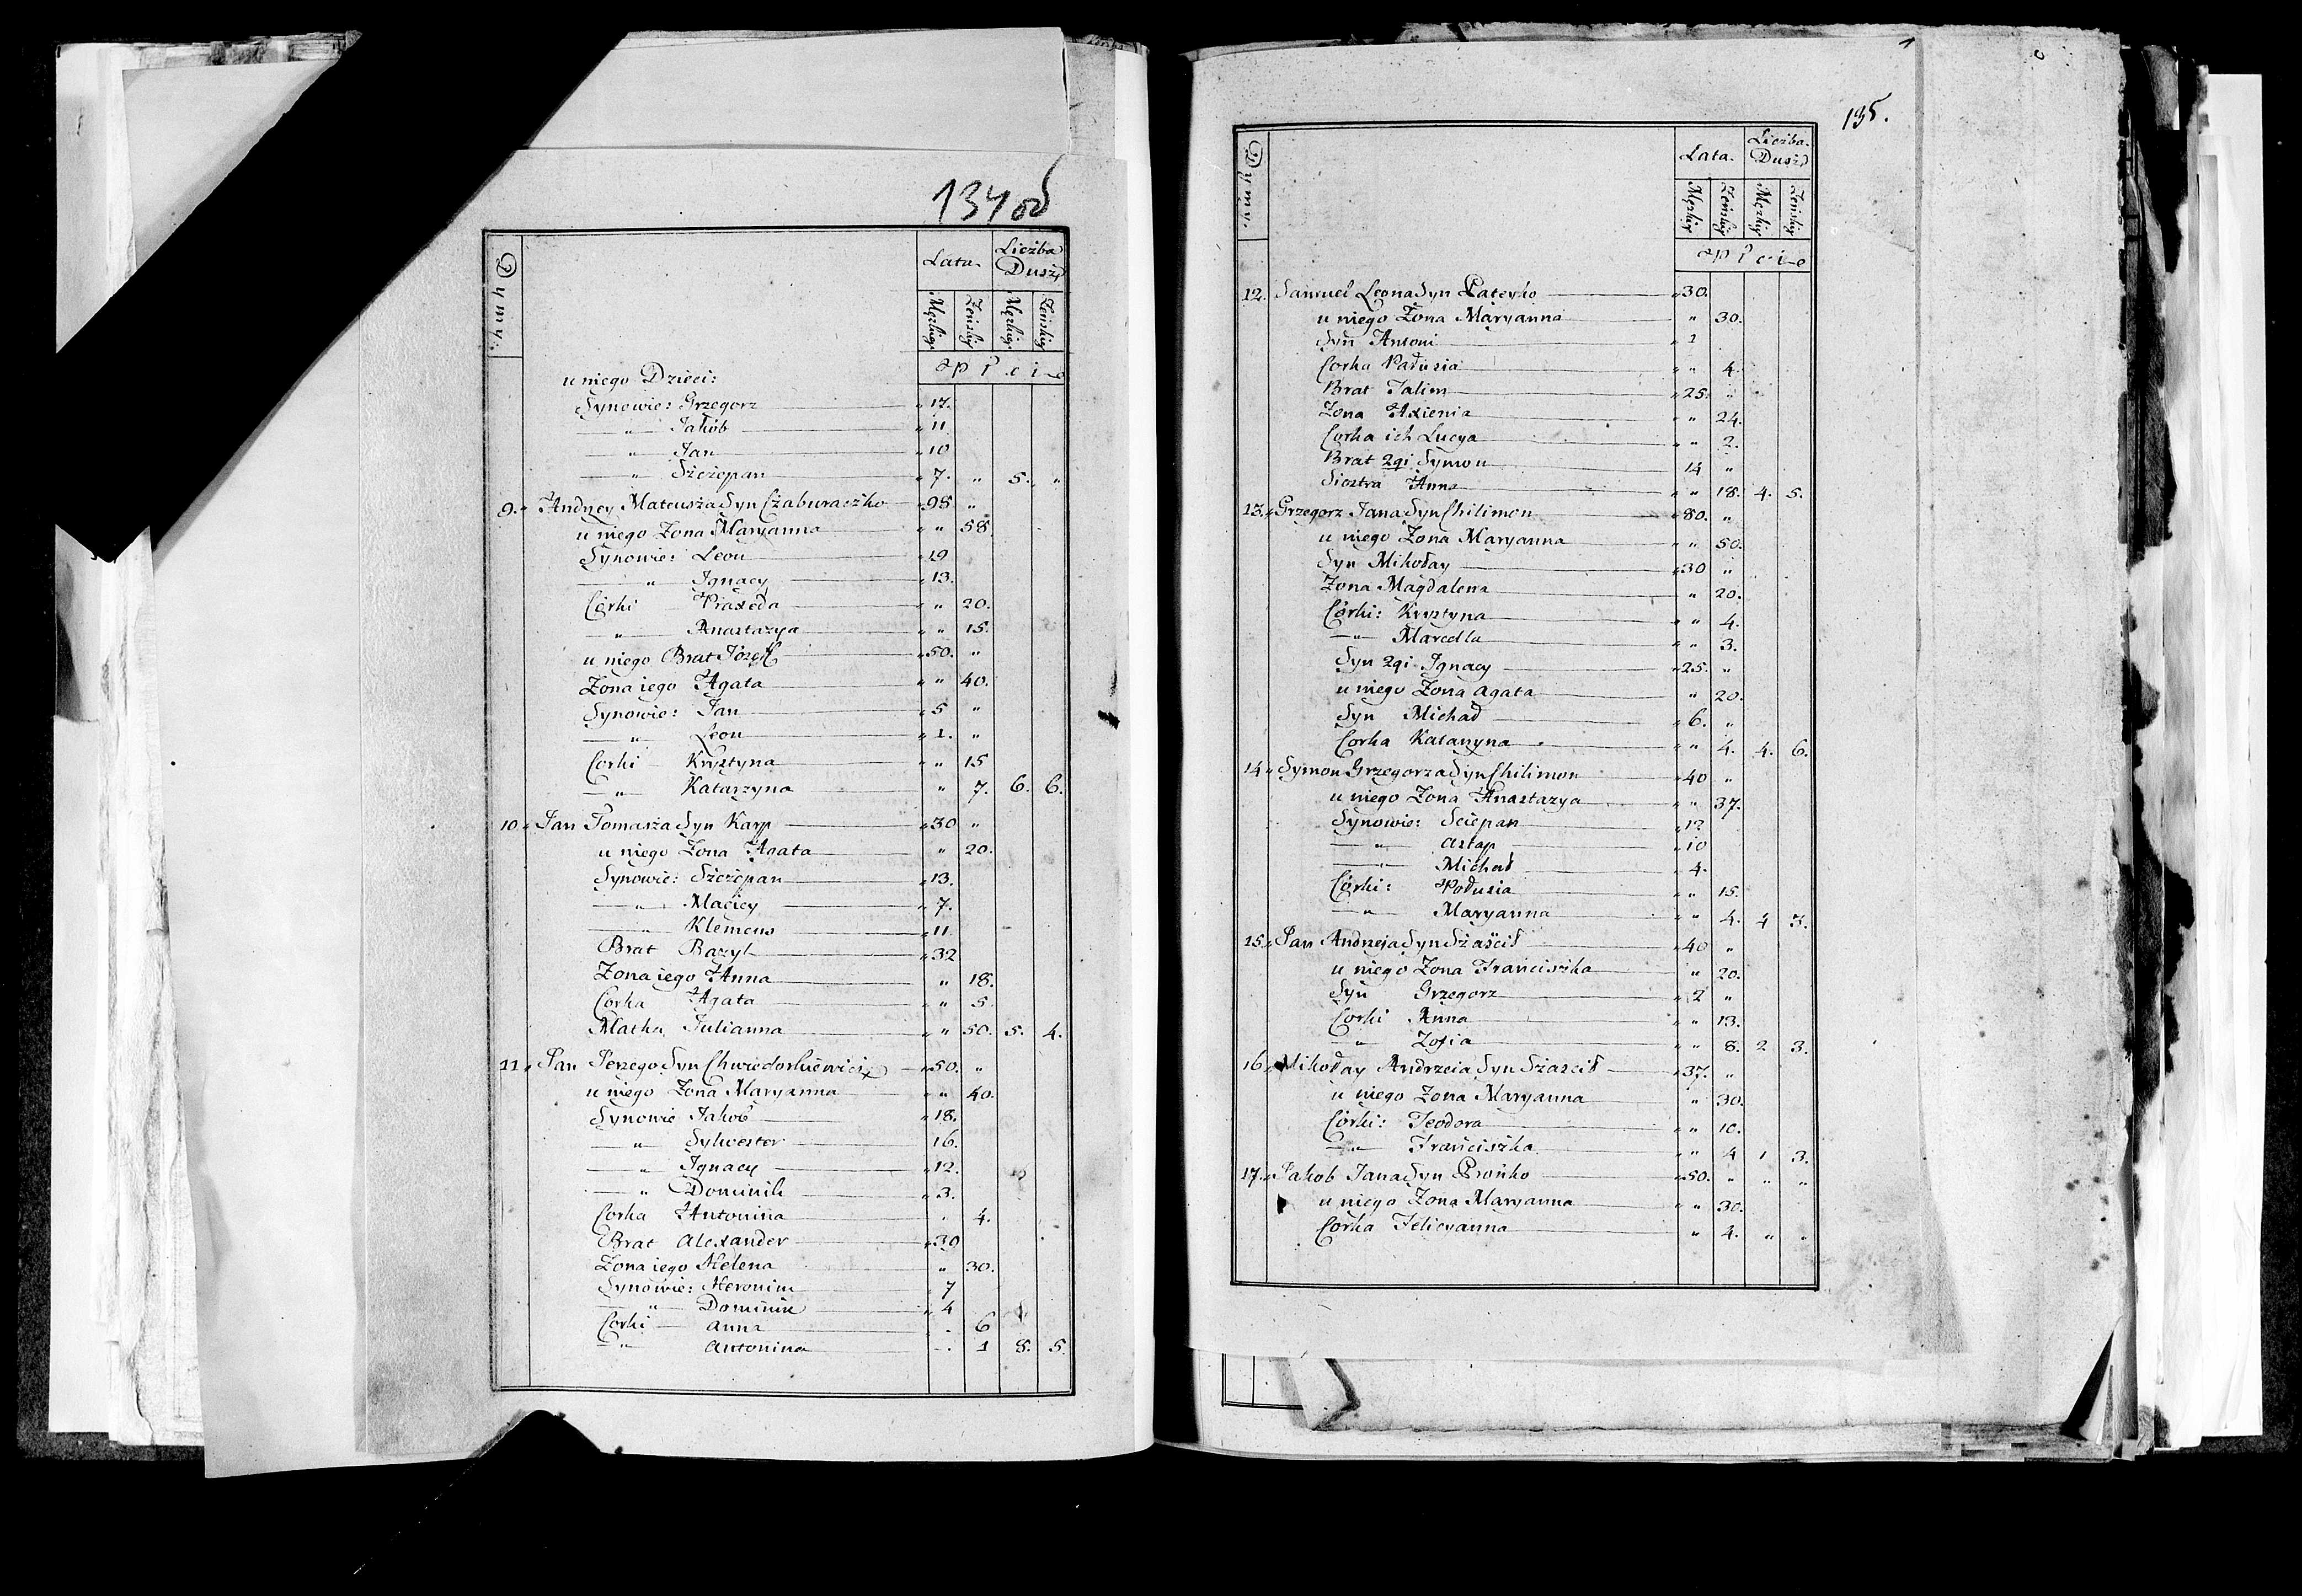 134 об
Dymy.
Lata.
Liczba Dusz,
Męzkiey
Żeńskiey
Męzkiey
Żeńskiey
Płci
u niego Dzieci:
Synowie: Grzegorz „ 17.
— „ — Jakób „ 11
— „ — Jan „ 10
— „ — Szczepan „ 7. „ 5. „
9. „ Andrzey Mateusza Syn Czaburaczko „ 98 „
u niego Żona Maryanna „ „ 58
Synowie: Leon „ 19
— „ — Ignacy „ 13.
Córki Praxeda „ „ 20.
— „ — Anastazya „ „ 15.
u niego Brat Józeff „ 50. „
Żona iego Agata „ „ 40.
Synowie: Jan „ 5 „
— „ — Leon „ 1. „
Corki Krystyna „ „ 15
— „ — Katarzyna „ 7. 6. 6.
10 „ Jan Tomasza Syn Karp „ 30 „
u niego Żona Agata „ 20.
Synowie: Szczepan „ 13.
— „ — Maciey „ 7.
— „ — Klemens „ 11
Brat Bazyl „ 32
Żona iego Anna „ 18.
Corka Agata „ „ 5
Matka Julianna „ „ 50. 5. 4.
11 „ Jan Jerzego Syn Chwiedorkiewicz „ 50. „
u niego Żona Maryanna „ „ 40.
Synowie Jakob „ 18.
— „ — Sylwester 16.
— „ — Ignacy „ 12.
— „ — Dominik „ 3.
Corka Antonina . 4.
Brat Alexander „ 30
Żona iego Helena „ 30.
Synowie: Heronim „ 7
— „ — Dominik „ 4
Corki — Anna . 6
— „ — Antonina . 1 8. 5.
135.
Dymy.
Lata.
Liczba Dusz,
Męzkiey
Żeńskiey
Męzkiey
Żeńskiey
Płci
12. Samuel Leona Syn Pateyko „ 30.
u niego Żona Maryanna „ 30.
Syn Antoni „ 1
Corka Parusia „ „ 4.
Brat Jalim „ 25. „
Żona Axienia „ „ 24.
Corka ich Lucya „ „ 2.
Brat 2gi Symon 14 „
Siostra Anna „ „ 18. 4. 5.
13. „ Grzegorz Jana Syn Chilimon „ 80. „
u niego Żona Maryanna „ „ 50.
Syn Mikołay „ 30 „
Żona Magdalena „ 20.
Córki: Krystyna „ „ 4.
— „ — Marcella „ „ 3.
Syn 2gi Ignacy „ 25. „
u niego Żona Agata „ 20.
Syn Michał „ 6. „
Corka Katarzyna „ „ 4. 4. 6.
14 „ Symon Grzegorza Syn Chilimon „ 40 „
u niego Żona Anastazya „ 37.
Synowie: Sciepan „ 12
— „ — Astap „ 10
— „ — Michał „ 4.
Córki: Połusia „ „ 15.
— „ — Maryanna „ „ 4. 4 3.
15 „ Jan Andrzeja Syn Szaścił „ 40 „
u niego Żona Franciszka „ 20.
Syn Grzegorz „ 2 „
Corki Anna „ „ 13.
— „ — Zofia „ „ 8. 2 3.
16 „ Mikołay Andrzeia Syn Szascił „ 37. „
u niego Żona Maryanna „ 30.
Córki: Teodora „ „ 10.
— „ — Franciszka „ „ 4 1 3.
17. „ Jakob Jana Syn Prońko „ 50. „ „ „
u niego Żona Maryanna „ „ 30.
Corka Felicyanna „ 4. „ „